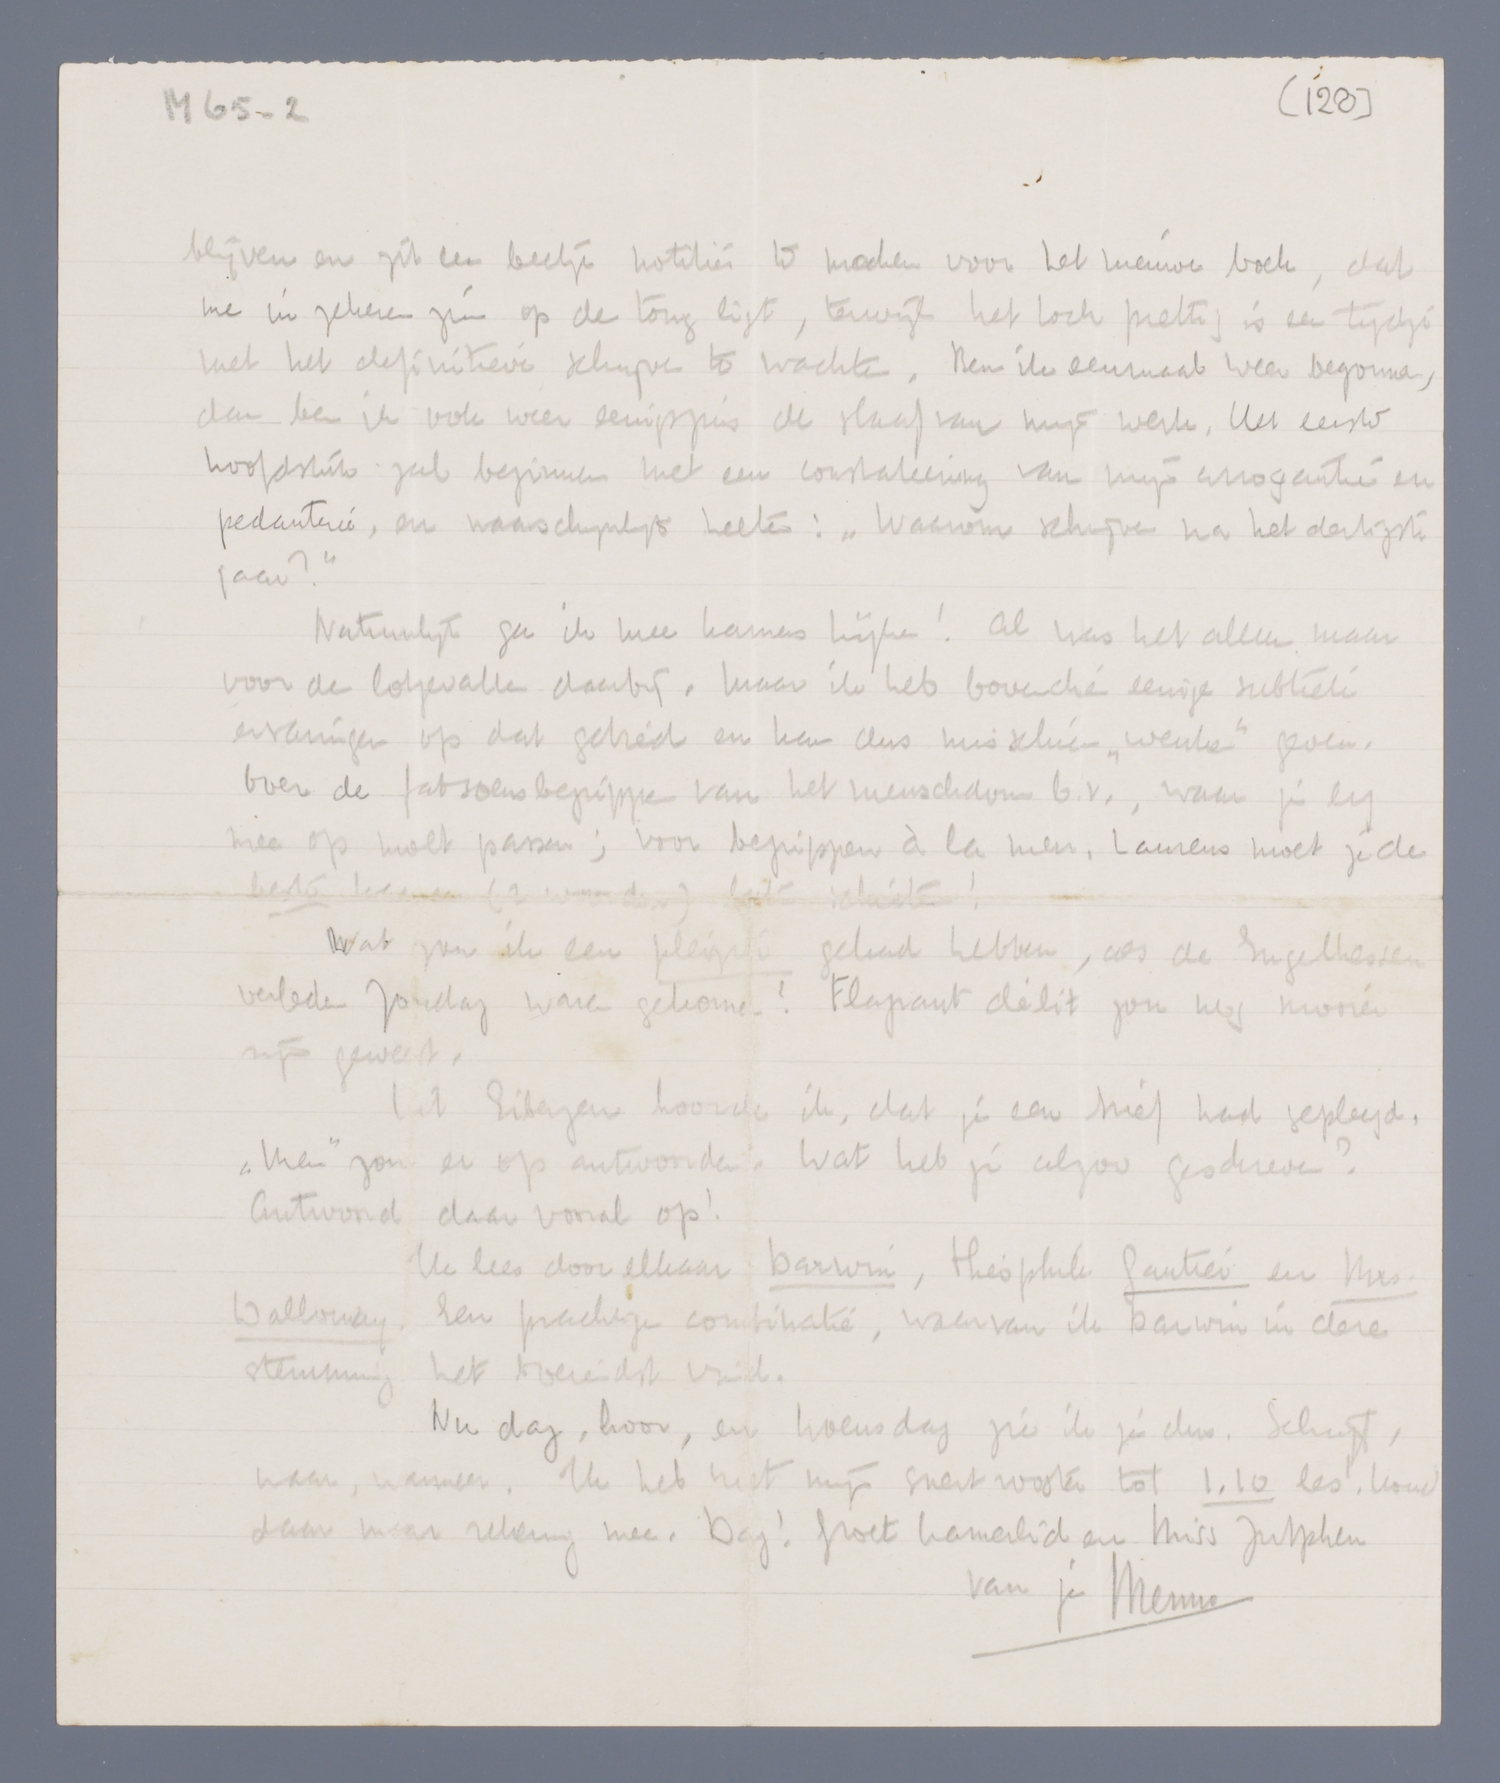 M65-2
(128)
blijven en zit een beetje notities te maken voor het nieuwe boek, dat
me in zekeren zin op de tong ligt, terwijl het toch prettig is een tijdje
met het definitieve schrijven te wachten. Ben ik eenmaal weer begonnen,
dan ben ik ook weer eenigszins de slaaf van mijn werk. Het eerste
hoofdstuk zal beginnen met een constateering van mijn arrogantie en
pedanterie, en waarschijnlijk heeten: „Waarom schrijven na het dertigste
jaar?"
Natuurlijk ga ik mee kamers kijken! Al was het alleen maar
voor de lotgevallen daarbij. Maar ik heb bovendien eenige subtiele
ervaringen op dat gebied en kan dus misschien „wenken" geven.
Over de fatsoensbegrippen van het menschdom b.v., waar je erg
mee op moet passen; voor begrippen à la mevr. Laurens moet je de
beste kamer (2 woorden) laten schieten!
Wat zou ik een pleizier gehad hebben, als de Engelhessen
verleden Zondag waren gekomen! Flagrant délit zou nog mooier
zijn geweest.
Uit Eibergen hoorde ik, dat je een brief had gepleegd.
„Men" zou er op antwoorden. Wat heb je alzoo geschreven?
Antwoord daar vooral op!
Ik lees door elkaar Darwin, Théophile Gautier en Mrs.
Dalloway. Een prachtige combinatie, waarvan ik Darwin in deze
stemming het boeiendst vind.
Nu dag, hoor, en Woensdag zie ik je dus. Schrijf,
waar, wanneer. Ik heb met mijn tot 1.10 les. Houd
daar maar rekening mee. Dag! Groet kamerlid en Miss Zutphen
van je Menno